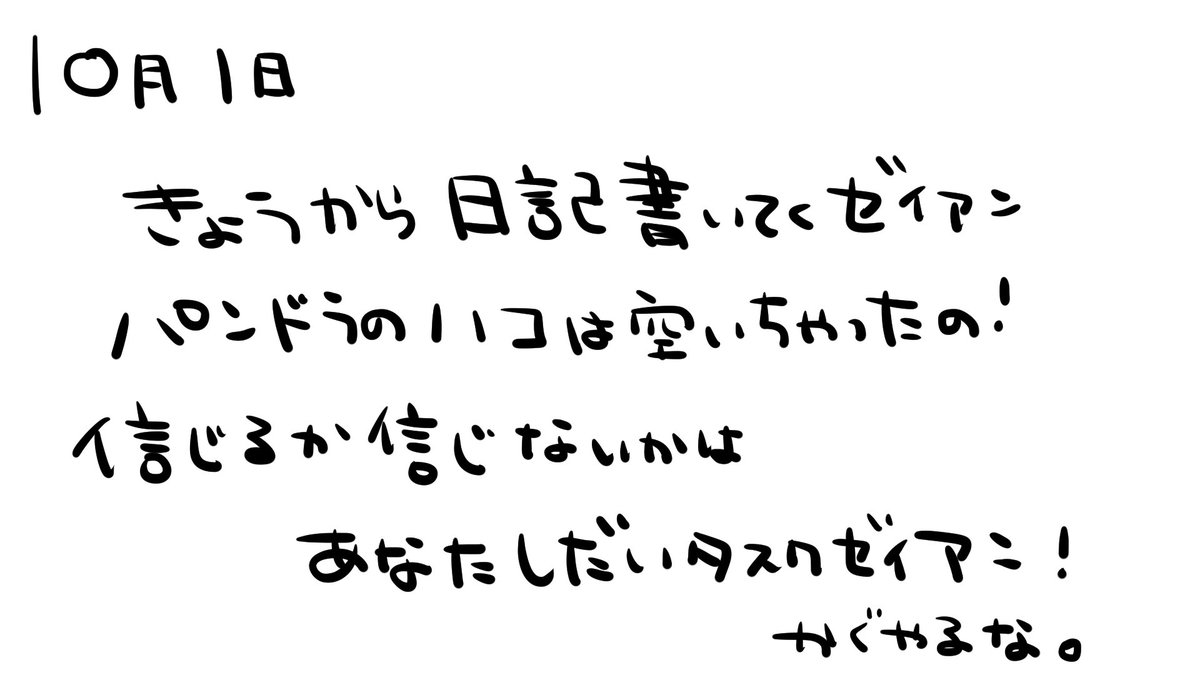 10月1日
きょうから日記書いてくゼイアン
パンドラのハコは空いちゃったの!
信じるか信じないかは
あなたしだいタスクゼイアン!
かぐやるな。